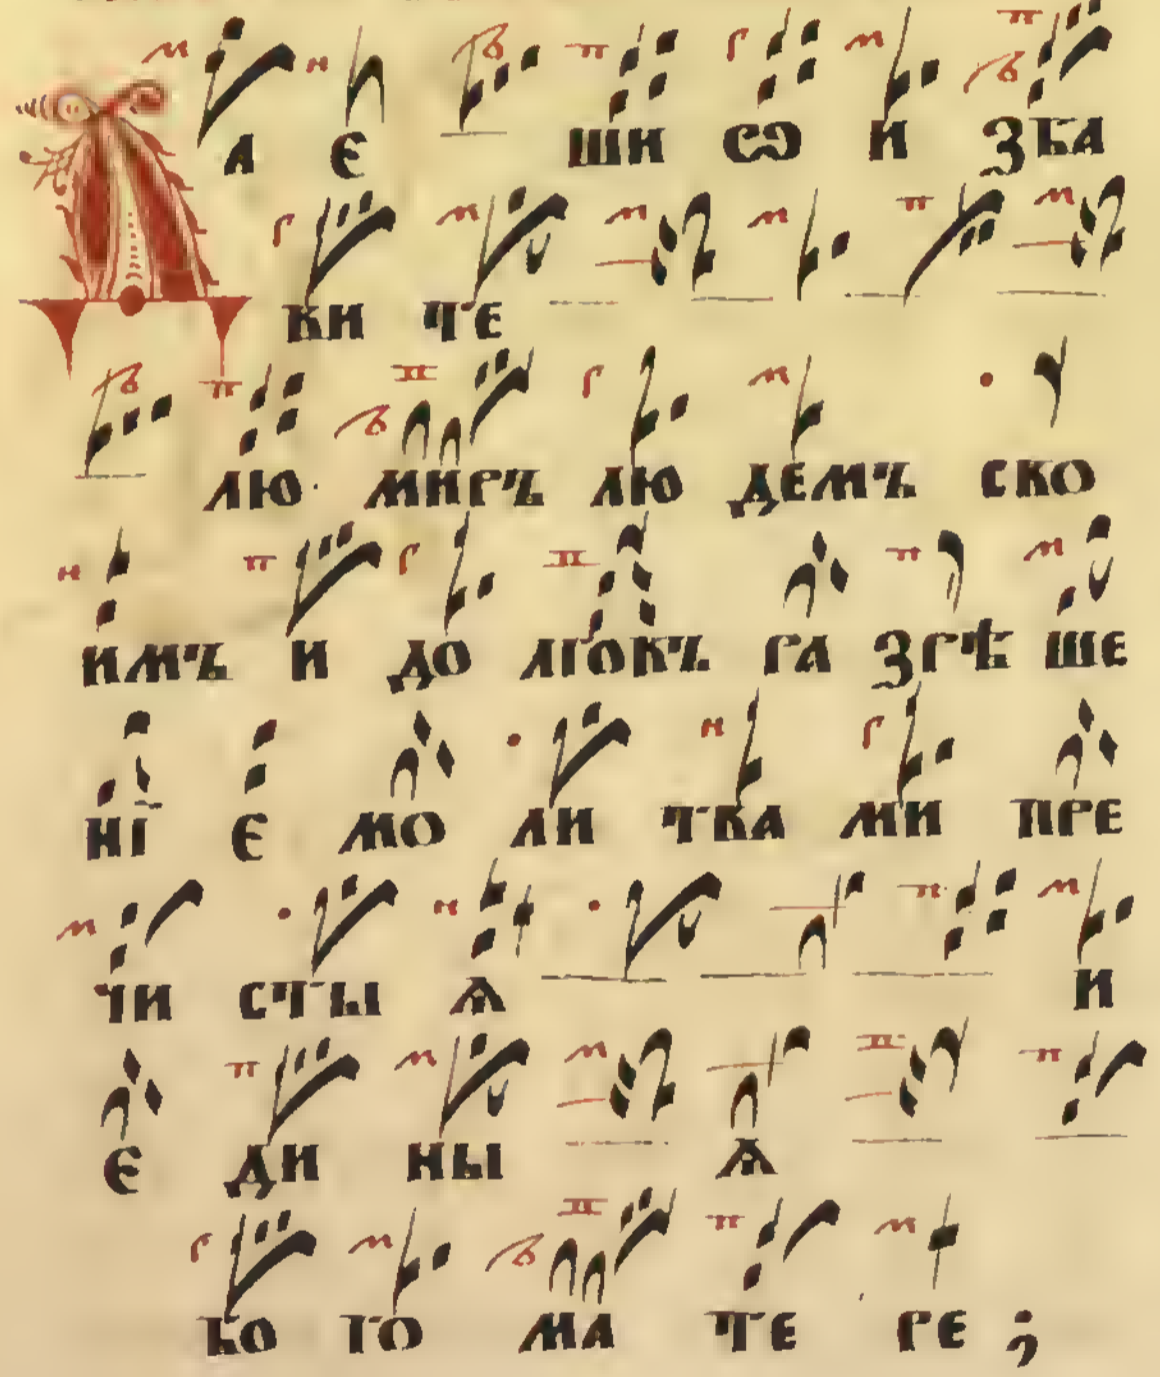 Да є ши ѽ и зба
ви те
лю· миръ лю демъ сво
имъ и до лговъ ра зрѣ ше
ні є мо ли тва ми пре
чи сты ѧ и
є ди ны ѧ
бо го ма те ре ;